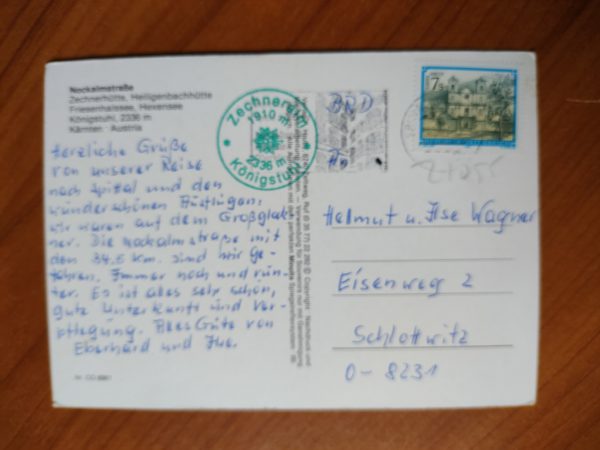 Nockalmstraße
Zechnerhütte, Heiligenbachhütte
Friesenhalssee, Hexensee
Königstuhl, 2336 m
Kärnten · Austria
Zechneralm
1910 m
2336 m
Königstuhl
BRD
7
Herzliche Grüße
von unserer Reise
nach Spital und den
wunderschönen Ausflügen,
wir waren auf dem Großglok
ner. Die Nockalmstraße mit
den 34,5 km. sind wir ge-
fahren, Immer hoch und run-
ter. Es ist alles sehr schön,
gute Unterkunft und Ver-
pflegung. Alles Gute von
Eberhard und
Helmut u. Ilse Wagner
Eisenweg 2
Schlottwitz
O-8231